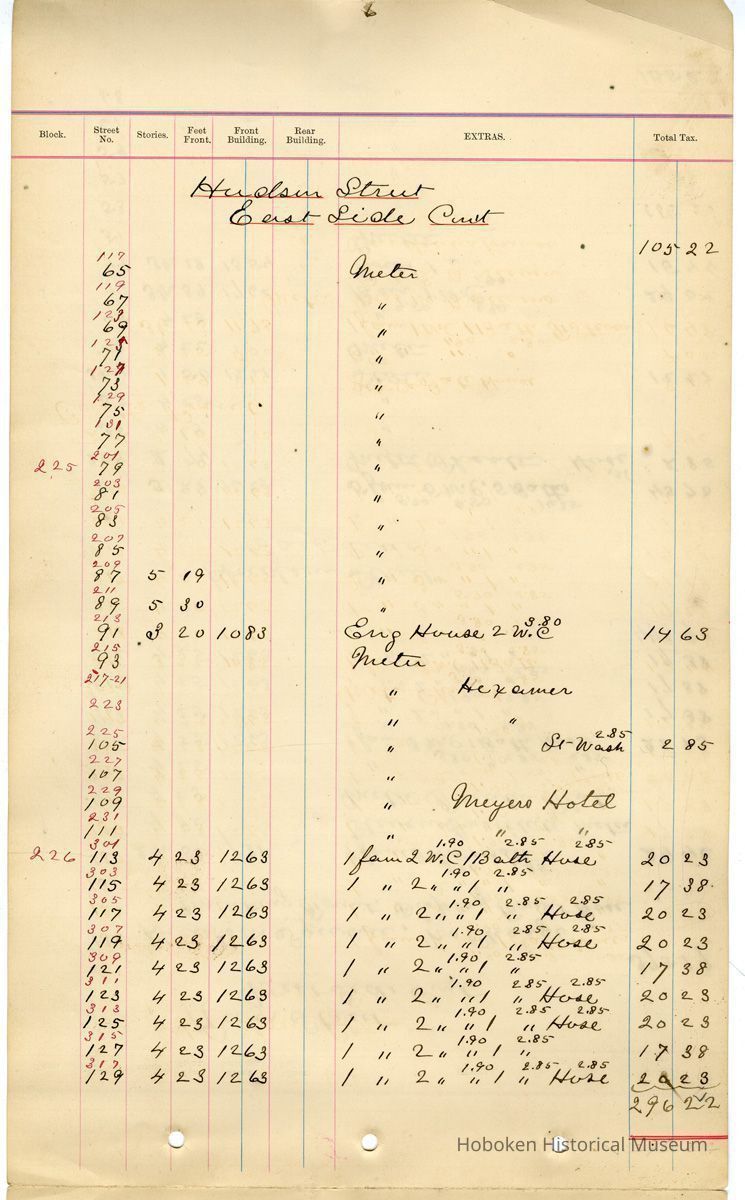 Block. Street No. Stories. Feet Front. Front Building. Rear Building. EXTRAS. Total Tax.
Hudson Street
East Side Cont
105 22
117
65 Meter
119
67 "
123
69 "
125
71 "
127
73 "
129
75 "
131
77 "
201
225 79 "
203
81 "
205
83 "
207
85 "
209
87 5 19 "
211
89 5 30 "
213 3.80
91 3 20 1083 Eng House 2 W.C 14 63
215
93 Meter
217-21 " Hexamer
223 " "
225 2.85
105 " St Wash 2 85
227
107 "
229
109 " Meyers Hotel
231
111 " " "
301 1.90 2.85 2.85
226 113 4 23 1263 1 fam 2 W.C 1 Bath Hose 20 23
303 1.90 2.85
115 4 23 1263 1 " 2 " " 1 " 17 38
305 1.90 2.85 2.85
117 4 23 1263 1 " 2 " " 1 " Hose 20 23
307 1.90 2.85 2.85
119 4 23 1263 1 " 2 " " 1 " Hose 20 23
309 1.90 2.85
121 4 23 1263 1 " 2 " " 1 " 17 38
311 1.90 2.85 2.85
123 4 23 1263 1 " 2 " " 1 " Hose 20 23
313 1.90 2.85 2.85
125 4 23 1263 1 " 2 " " 1 " Hose 20 23
315 1.90 2.85
127 4 23 1263 1 " 2 " " 1 " 17 38
317 1.90 2.85 2.85
129 4 23 1263 1 " 2 " " 1 " Hose 20 23
296 22
Hoboken Historical Museum